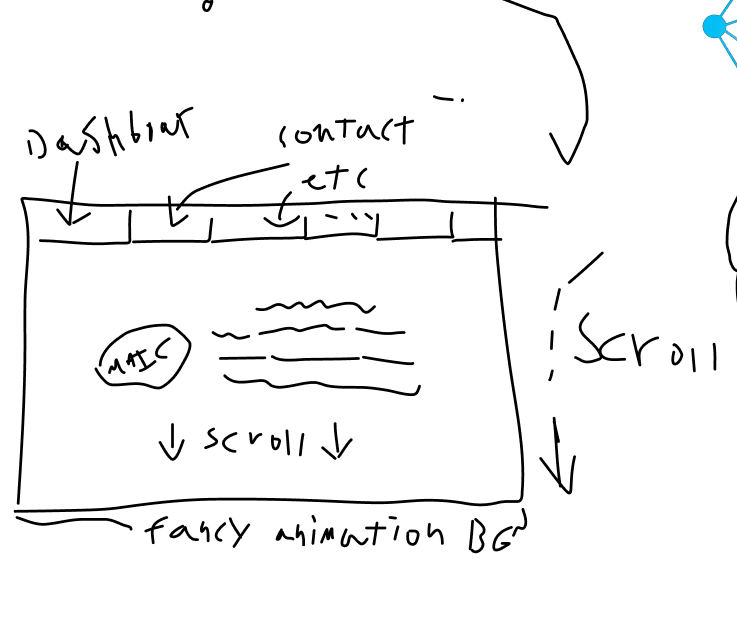 Dashboar
contact
etc
MAIC
scroll
scroll
fancy animation BG